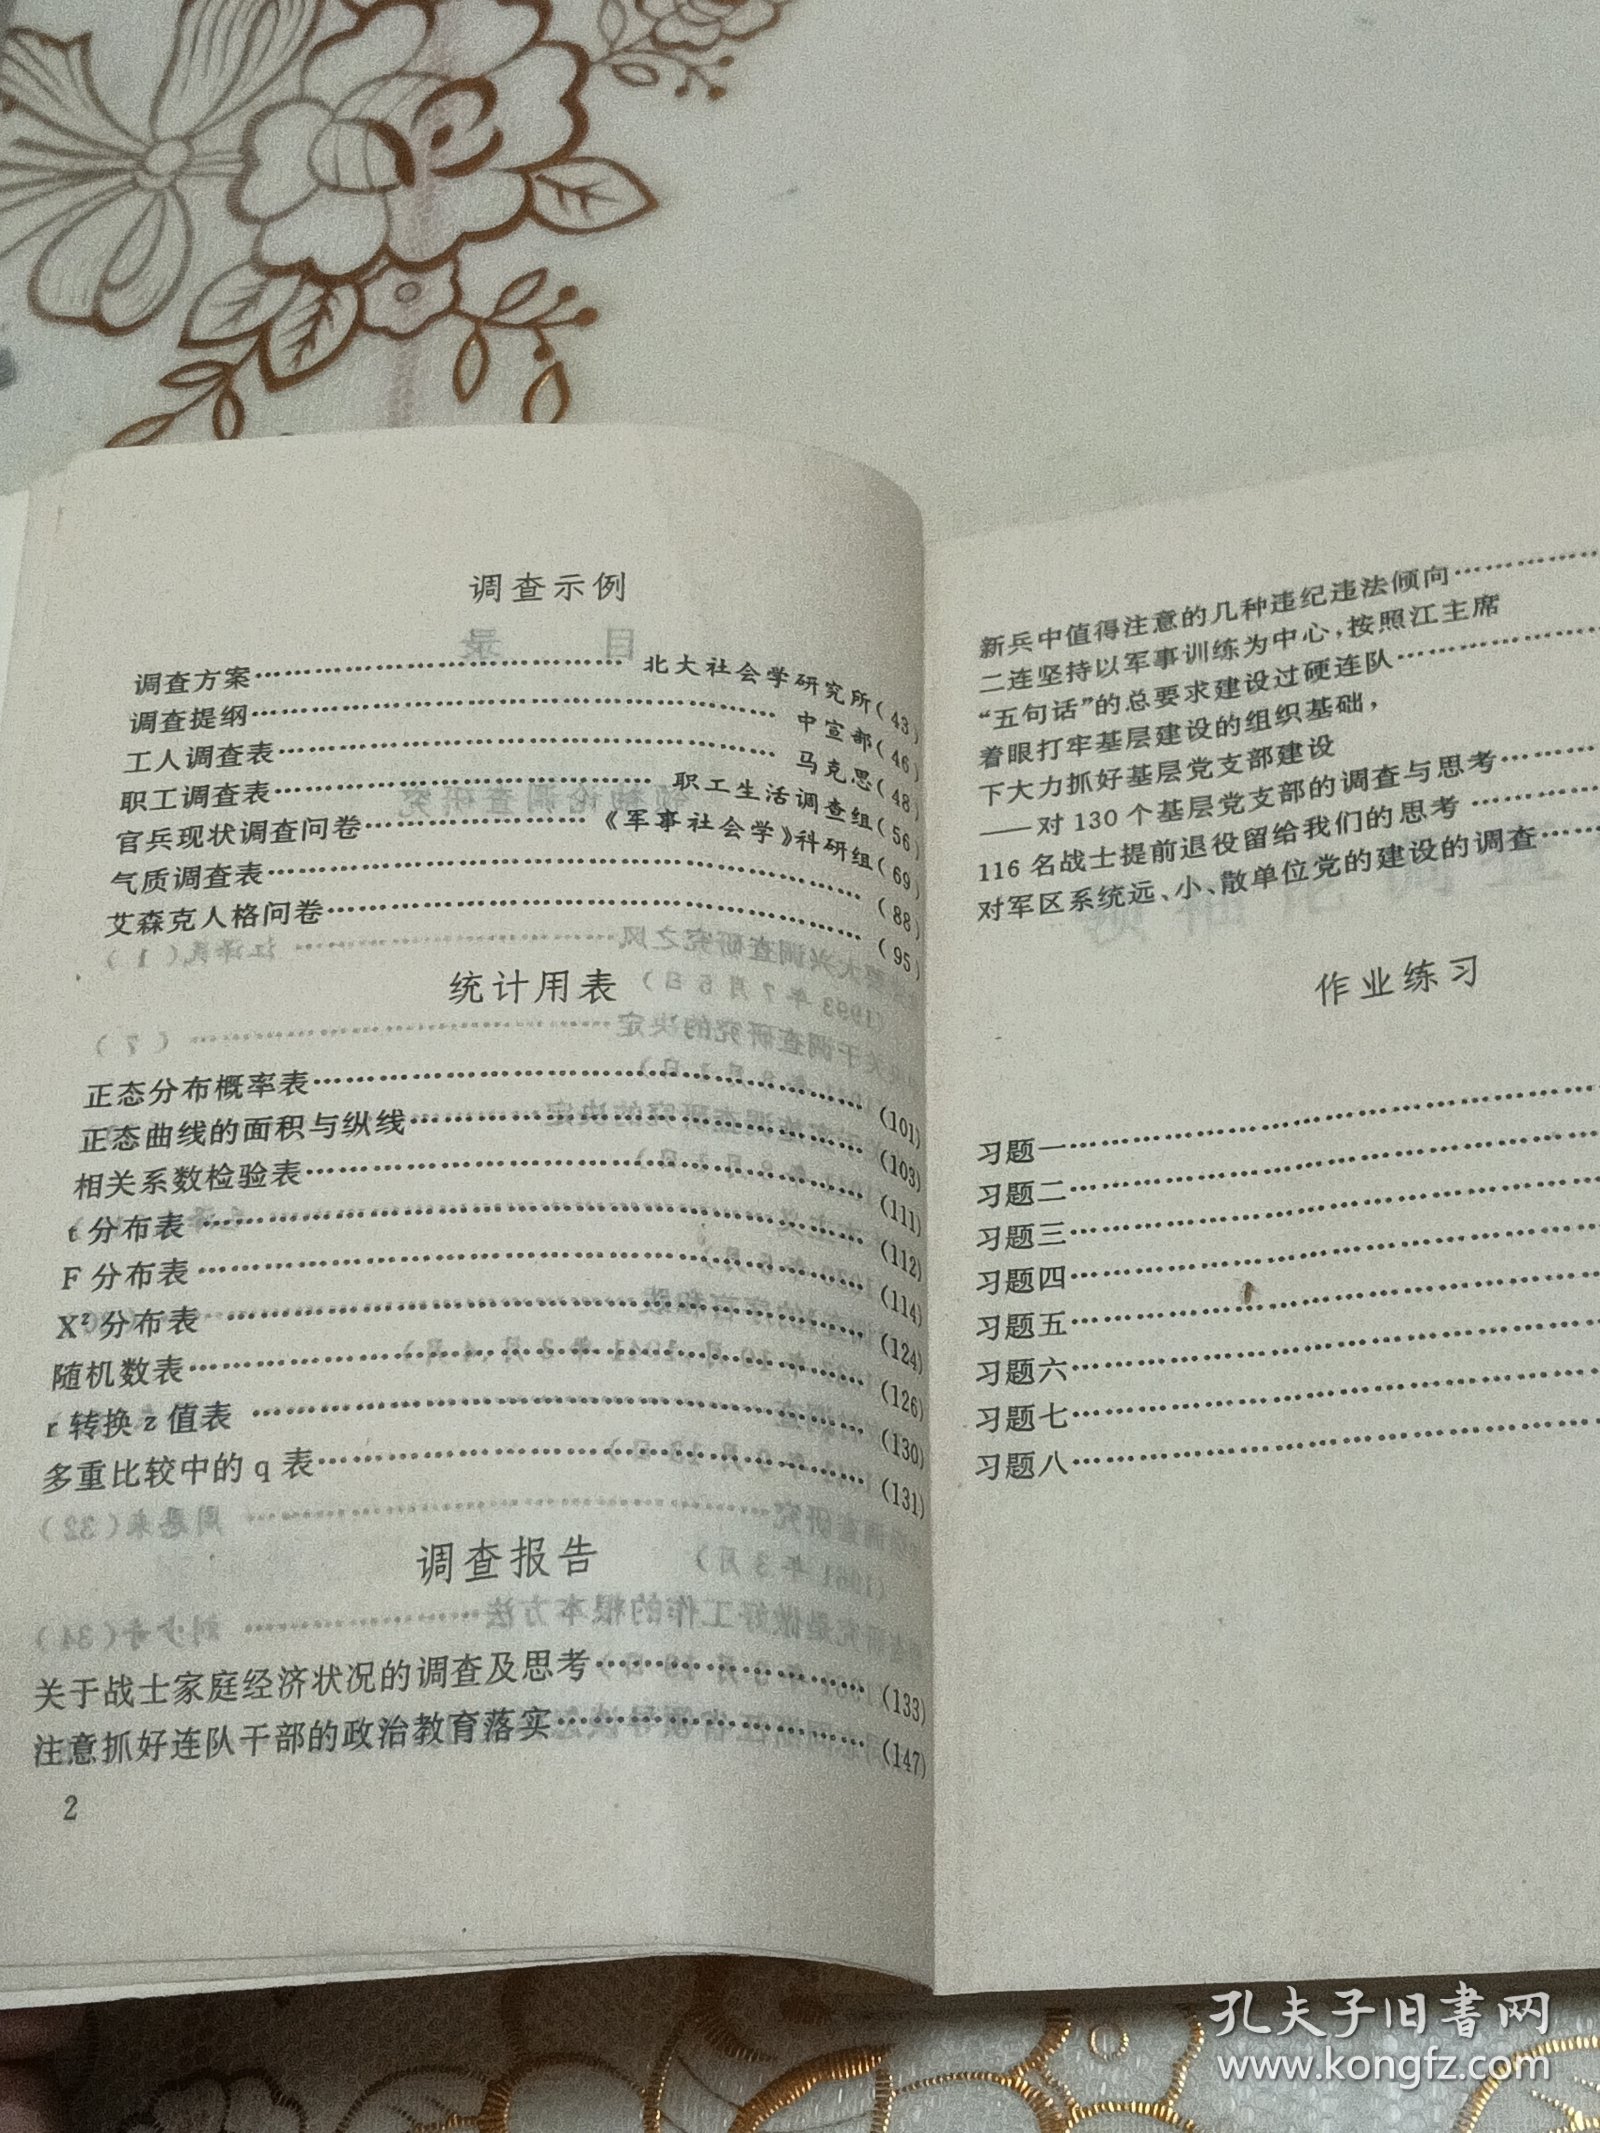 调查示例
调查方案………………………………北大社会学研究所(43)
调查提纲………………………………………………中宣部(46)
工人调查表……………………………………………马克思(48)
职工调查表…………………………………职工生活调查组(56)
官兵现状调查问卷…………………《军事社会学》科研组(69)
气质调查表……………………………………………………(88)
艾森克人格问卷………………………………………………(95)
统计用表
正态分布概率表………………………………………………(101)
正态曲线的面积与纵线………………………………………(103)
相关系数检验表………………………………………………(111)
t分布表………………………………………………………(112)
F分布表………………………………………………………(114)
X²分布表………………………………………………………(124)
随机数表………………………………………………………(126)
r转换z值表……………………………………………………(130)
多重比较中的q表………………………………………………(131)
调查报告
关于战士家庭经济状况的调查及思考…………………………(133)
注意抓好连队干部的政治教育落实……………………………(147)
2
新兵中值得注意的几种违纪违法倾向……………
二连坚持以军事训练为中心,按照江主席
“五句话”的总要求建设过硬连队……………
着眼打牢基层建设的组织基础,
下大力抓好基层党支部建设
——对130个基层党支部的调查与思考…………
116名战士提前退役留给我们的思考……………
对军区系统远、小、散单位党的建设的调查……
作业练习
习题一………………………………………………
习题二………………………………………………
习题三………………………………………………
习题四………………………………………………
习题五………………………………………………
习题六………………………………………………
习题七………………………………………………
习题八………………………………………………
孔夫子旧书网
www.kongfz.com